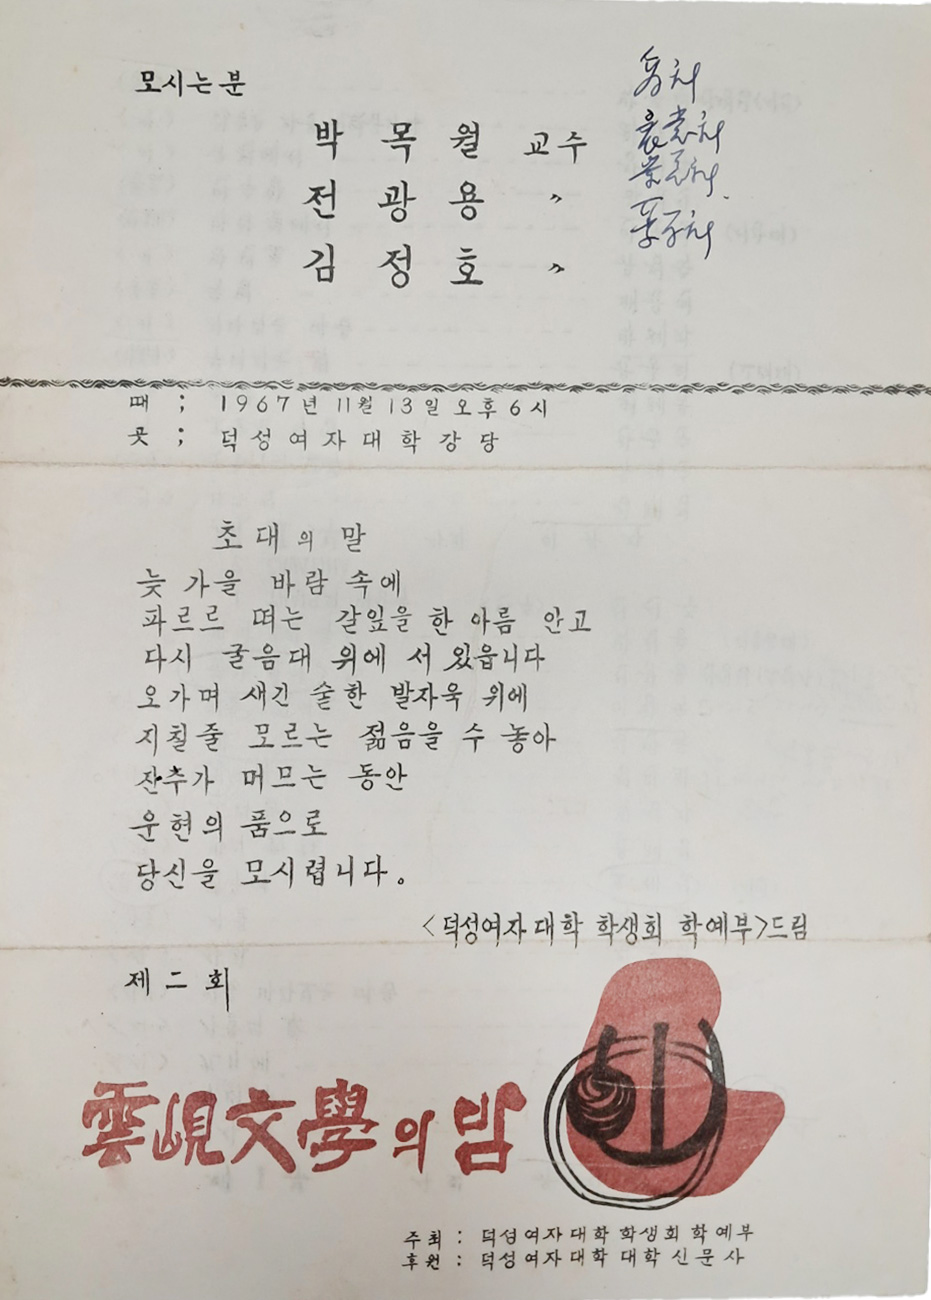 모시는 분
박 목 월 교수
전 광 용 〃
김 정 호 〃
때 ; 1967년 11월 13일 오후 6시
곳 ; 덕성여자대학강당
초대의 말
늦 가을 바람 속에
파르르 떠는 갈잎을 한 아름 안고
다시 굴음대 위에 서 있읍니다
오가며 새긴 숱한 발자욱 위에
지칠줄 모르는 젊음을 수 놓아
잔추가 머므는 동안
운현의 품으로
당신을 모시렵니다.
<덕성여자대학 학생회 학예부>드림
제 二 회
雲峴文學의 밤
주최 : 덕성여자대학학생회학예부
후원 : 덕성여자대학 대학신문사